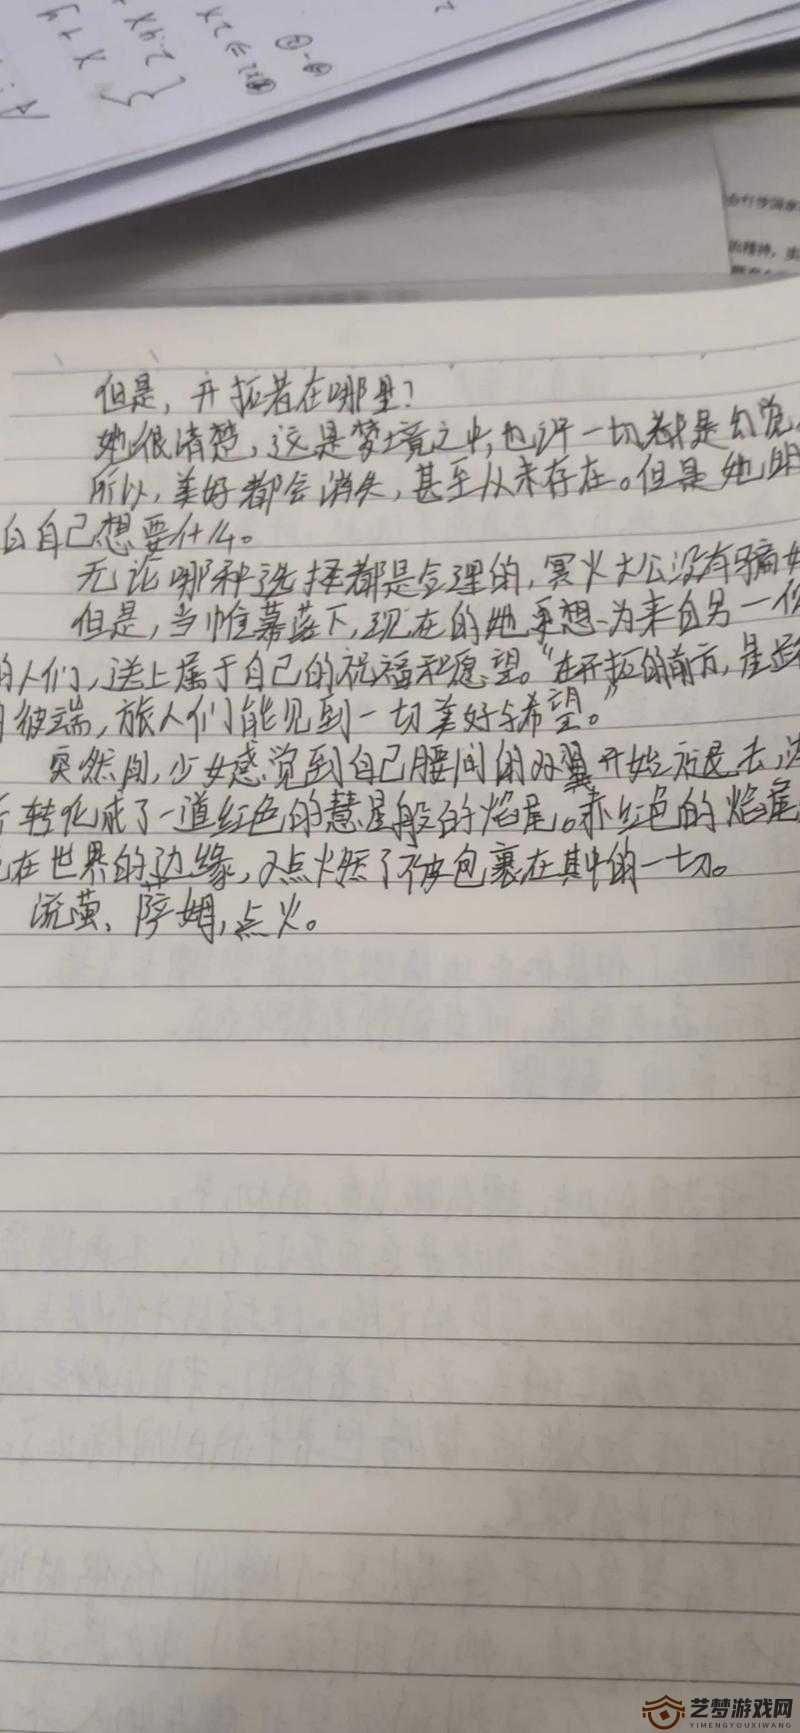 ①-②
但是,开拓者在哪里?
她很清楚,这是梦境之中,也许一切都是幻觉
所以,美好都会消失,甚至从未存在。但是她明
白自己想要什么。
无论哪种选择都是合理的,冥火大公没有骗她
但是,当帷幕落下,现在的她更想为来自另一个
的人们,送上属于自己的祝福和愿望。“在开拓的前方,星
的彼端,旅人们能见到一切美好与希望。”
突然间,少女感觉到自己腰间的双翼开始褪去,
转化成了一道红色的慧星般的焰尾。赤红色的焰尾
在世界的边缘,又点燃了被包裹在其中的一切。
流萤、萨姆,点火。
的精神,
艺梦游戏网
YIMENGYOUXIWANG